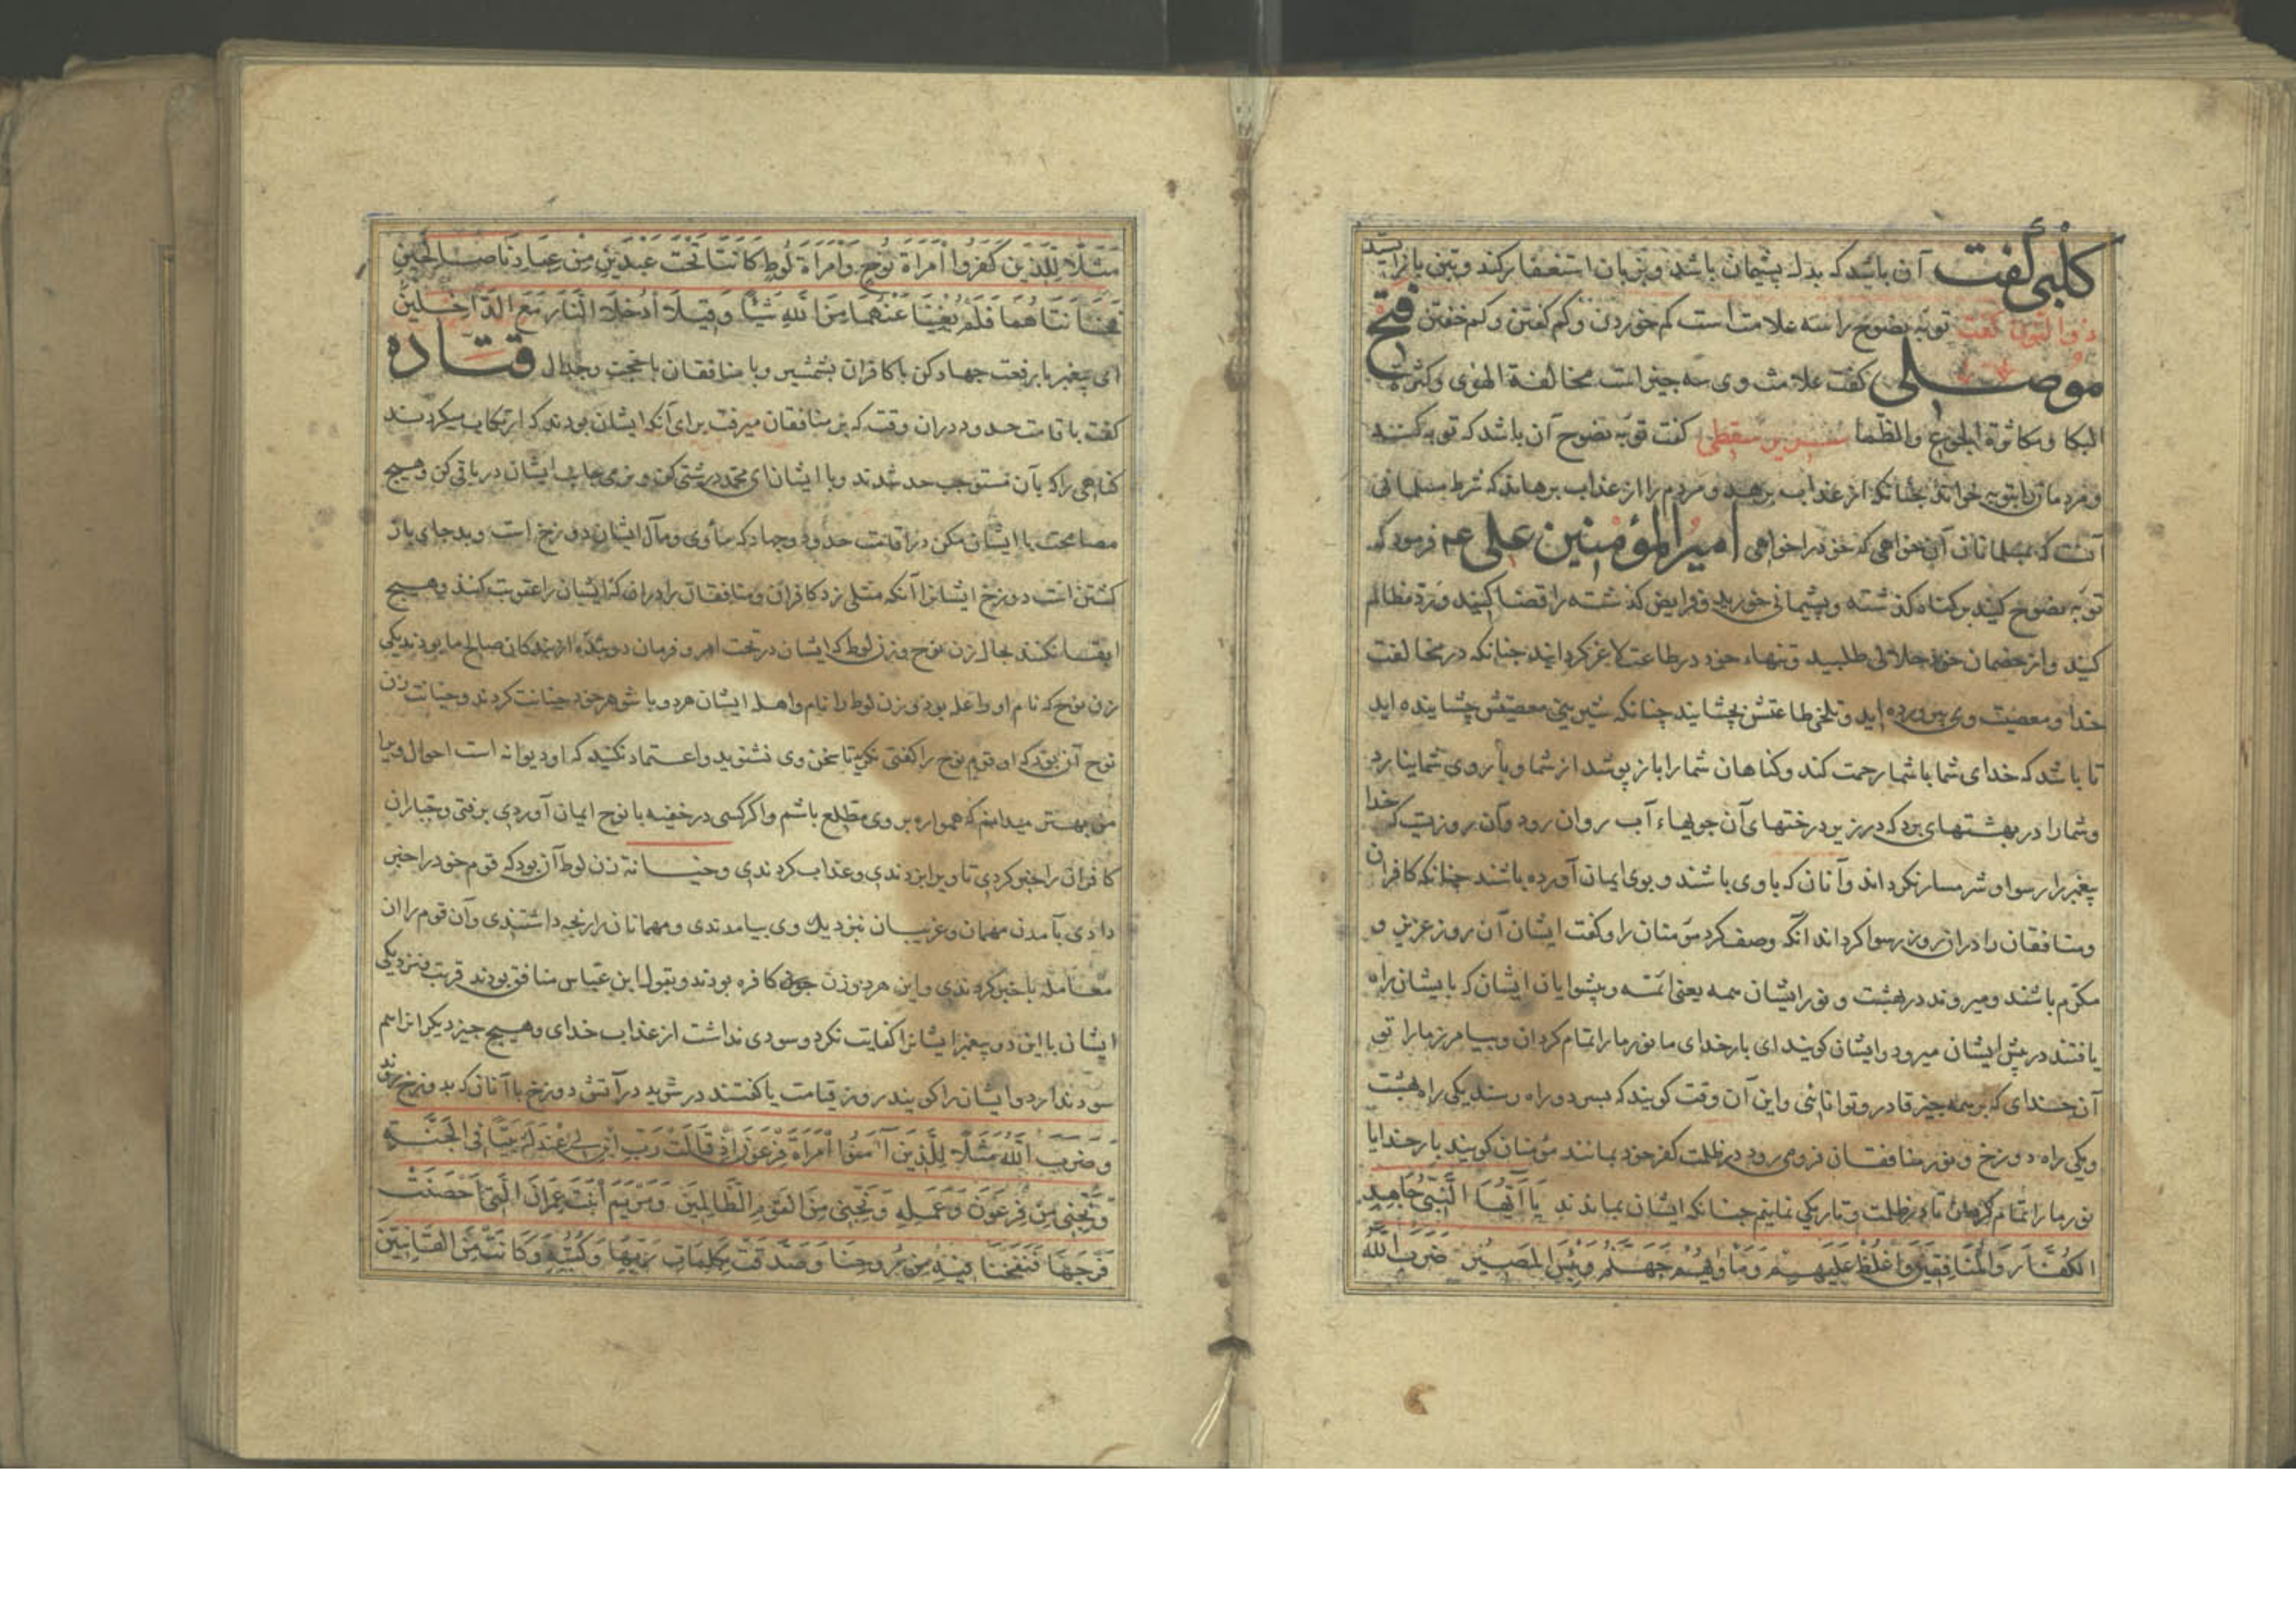 کلبی گفت آن باشد که بدل پشیمان باشد و بزبان استغفار کند و بتن باز ایستد
ذو النون گفت توبه نصوح را سه علامت است کم خوردن و کم گفتن و کم خفتن فتح
موصلی گفت علامت وی سه چیز است مخالفة الهوی و کثرة
البکا و مکاثرة الجوع والظما سقطی گفت توبه نصوح آن باشد که توبه کنند
و مردمانرا بتوبه خوانند چنانکه از عذاب برهد و مردم را از عذاب برهاند که شرط مسلمانی
آنست که بمسلمانان آن خواهی که خود را خواهی امیر المؤمنین علی عم فرمود که
توبه نصوح کنید بر گناه گذشته و پشیمانی خورید و فرایض گذشته را قضا کنید و رد مظالم
کنید و از خصمان خود حلالی طلبید و تنهاء خود در طاعت لاغر گردانید چنانکه در مخالفت
خدا و معصیت وی پرورده اید و تلخی طاعتش بچشایند چنانکه شیرینی معصیتش چشاینده اید
تا باشد که خدای شما با شما رحمت کند و گناهان شما را باز پوشد از شما و با روی شما نیارد
و شما را در بهشتهای برد که در زیر درختهای آن جویهاء آب روان رود و آن روزیست که خدا
پیغمبر را رسوا و شرمسار نگرداند و آنان که با وی باشند و بوی ایمان آورده باشند چنانکه کافران
و منافقان را در آن روز رسوا گرداند آنگه وصف کرد مؤمنان را و گفت ایشان آن روز عزیز و
مکرم باشند و میروند در بهشت و نور ایشان همه یعنی ائمه و پیشوایان ایشان که بایشان راه
یافتند در پیش ایشان میرود و ایشان گویند ای بار خدای ما نور ما را تمام گردان و بیامرز ما را تو
آن خدای که بر همه چیز قادر و توانائی و این آن وقت گویند که بسر دو راه رسند یکی راه بهشت
و یکی راه دوزخ و نور منافقان فرو می رود در ظلمت کفر خود بمانند مؤمنان گویند بار خدایا
نور ما را تمام گردان تا در ظلمت و تاریکی نمانیم چنانکه ایشان بماندند یَا أَیُّهَا النَّبِیُّ جَاهِدِ
الْکُفَّارَ وَالْمُنَافِقِینَ وَاغْلُظْ عَلَیْهِمْ وَمَأْوٰیهُمْ جَهَنَّمُ وَبِئْسَ الْمَصِیرُ ضَرَبَ اللّٰهُ
مَثَلًا لِلَّذِینَ کَفَرُوا امْرَأَةَ نُوحٍ وَامْرَأَةَ لُوطٍ کَانَتَا تَحْتَ عَبْدَیْنِ مِنْ عِبَادِنَا صَالِحَیْنِ
فَخَانَتَاهُمَا فَلَمْ یُغْنِیَا عَنْهُمَا مِنَ اللّٰهِ شَیْئًا وَقِیلَ ادْخُلَا النَّارَ مَعَ الدَّاخِلِینَ
ای پیغمبر با رفعت جهاد کن با کافران بشمشیر و با منافقان با حجت و جدال قتاده
گفت باقامت حدود در آن وقت که بر منافقان میرفت برای آنکه ایشان بودند که ارتکاب میکردند
گناهی را که بآن مستوجب حد شدند و با ایشان ای محمد درشتی کن و نرمی بجانب ایشان در باقی کن و هیچ
مصامحت با ایشان مکن در اقامت حدود و جهاد که مأوی و مآل ایشان دوزخ است و بد جای باز
گشتن است دوزخ ایشانرا آنکه مثلی زد کافران و منافقان را در آن که ایشان را عقوبت کند و هیچ
ابقا نکند بحال زن نوح و زن لوط که ایشان در تحت امر و فرمان دو بنده از بندگان صالح ما بودند یکی
زن نوح که نام او واعله بودی زن لوط را نام واهله ایشان هر دو با شوهر خود خیانت کردند و خیانت زن
نوح آن بود که او قوم نوح را گفتی نگر تا سخن وی نشنوید و اعتماد نکنید که او دیوانه است احوال ویرا
من بهتر میدانم که همواره بر وی مطلع باشم و اگر کسی در خفیه با نوح ایمان آوردی برفتی و جباران
کافران را خبر کردی تا ویرا بزدندی و عذاب کردندی و خیانة زن لوط آن بود که قوم خود را خبر
دادی بآمدن مهمان و غریبان نزدیک وی بیامدندی و مهمانان را رنجه داشتندی و آن قوم را از آن
معامله با خبر کردندی و این هر دو زن کافره بودند و بقول ابن عباس منافق بودند قربت و نزدیکی
ایشان با این دو پیغمبر ایشانرا کفایت نکرد و سودی نداشت از عذاب خدای و هیچ چیز دیگر از اسم
سود ندارد و ایشان را گویند روز قیامت یا گفتند در شوید در آتش دوزخ با آنان که بدوزخ روند
وَضَرَبَ اللّٰهُ مَثَلًا لِلَّذِینَ آمَنُوا امْرَأَةَ فِرْعَوْنَ إِذْ قَالَتْ رَبِّ ابْنِ لِی عِنْدَکَ بَیْتًا فِی الْجَنَّةِ
وَنَجِّنِی مِنْ فِرْعَوْنَ وَعَمَلِهِ وَنَجِّنِی مِنَ الْقَوْمِ الظَّالِمِینَ وَمَرْیَمَ ابْنَتَ عِمْرَانَ الَّتِی أَحْصَنَتْ
فَرْجَهَا فَنَفَخْنَا فِیهِ مِنْ رُوحِنَا وَصَدَّقَتْ بِکَلِمَاتِ رَبِّهَا وَکُتُبِهِ وَکَانَتْ مِنَ الْقَانِتِینَ